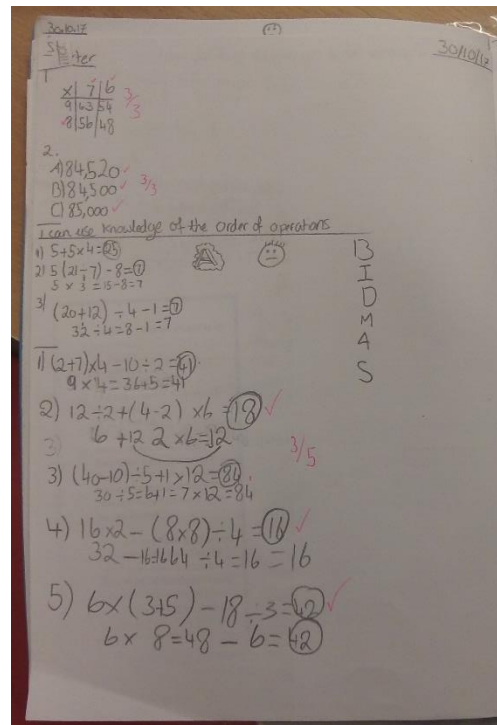 30.10.17
30/10/17
Starter
1
× 7 6
9 63 54
8 56 48
3/3
2.
A) 84,520
B) 84,500
C) 85,000
3/3
I can use knowledge of the order of operations
1) 5+5×4=25
2) 5(21÷7)-8=7
5 × 3 =15-8=7
3) (20+12)÷4-1=7
32÷4=8-1=7
B
I
D
M
A
S
1) (2+7)×4-10÷2=41
9×4=36+5=41
2) 12÷2+(4-2)×6=18
6+12 2×6=12
3)
3/5
3) (40-10)÷5+1×12=84
30÷5=6+1=7×12=84
4) 16×2-(8×8)÷4=16
32-16=16 64÷4=16=16
5) 6×(3+5)-18÷3=42
6×8=48-6=42